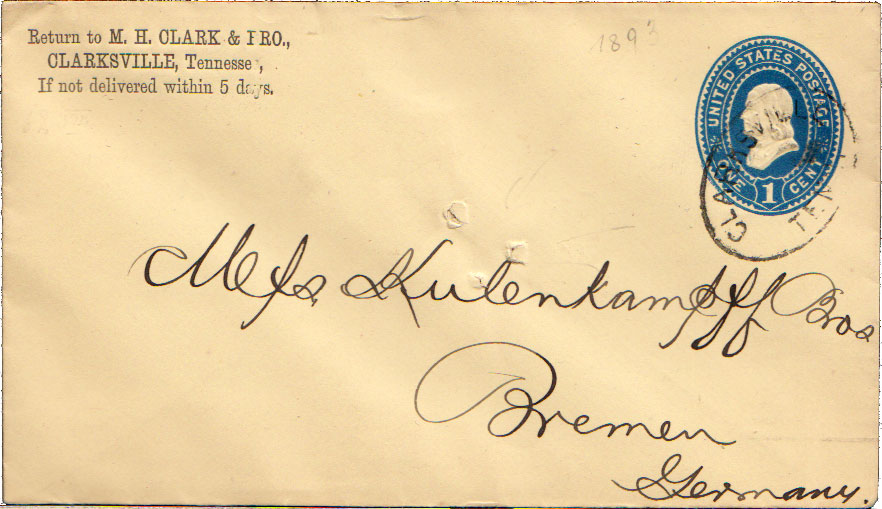 Return to M. H. CLARK & BRO.,
CLARKSVILLE, Tennessee,
If not delivered within 5 days.
1893
UNITED STATES POSTAGE
ONE 1 CENT
CLARKSVILLE
TENN
Messs. Kulenkampff Bros
Bremen
Germany.